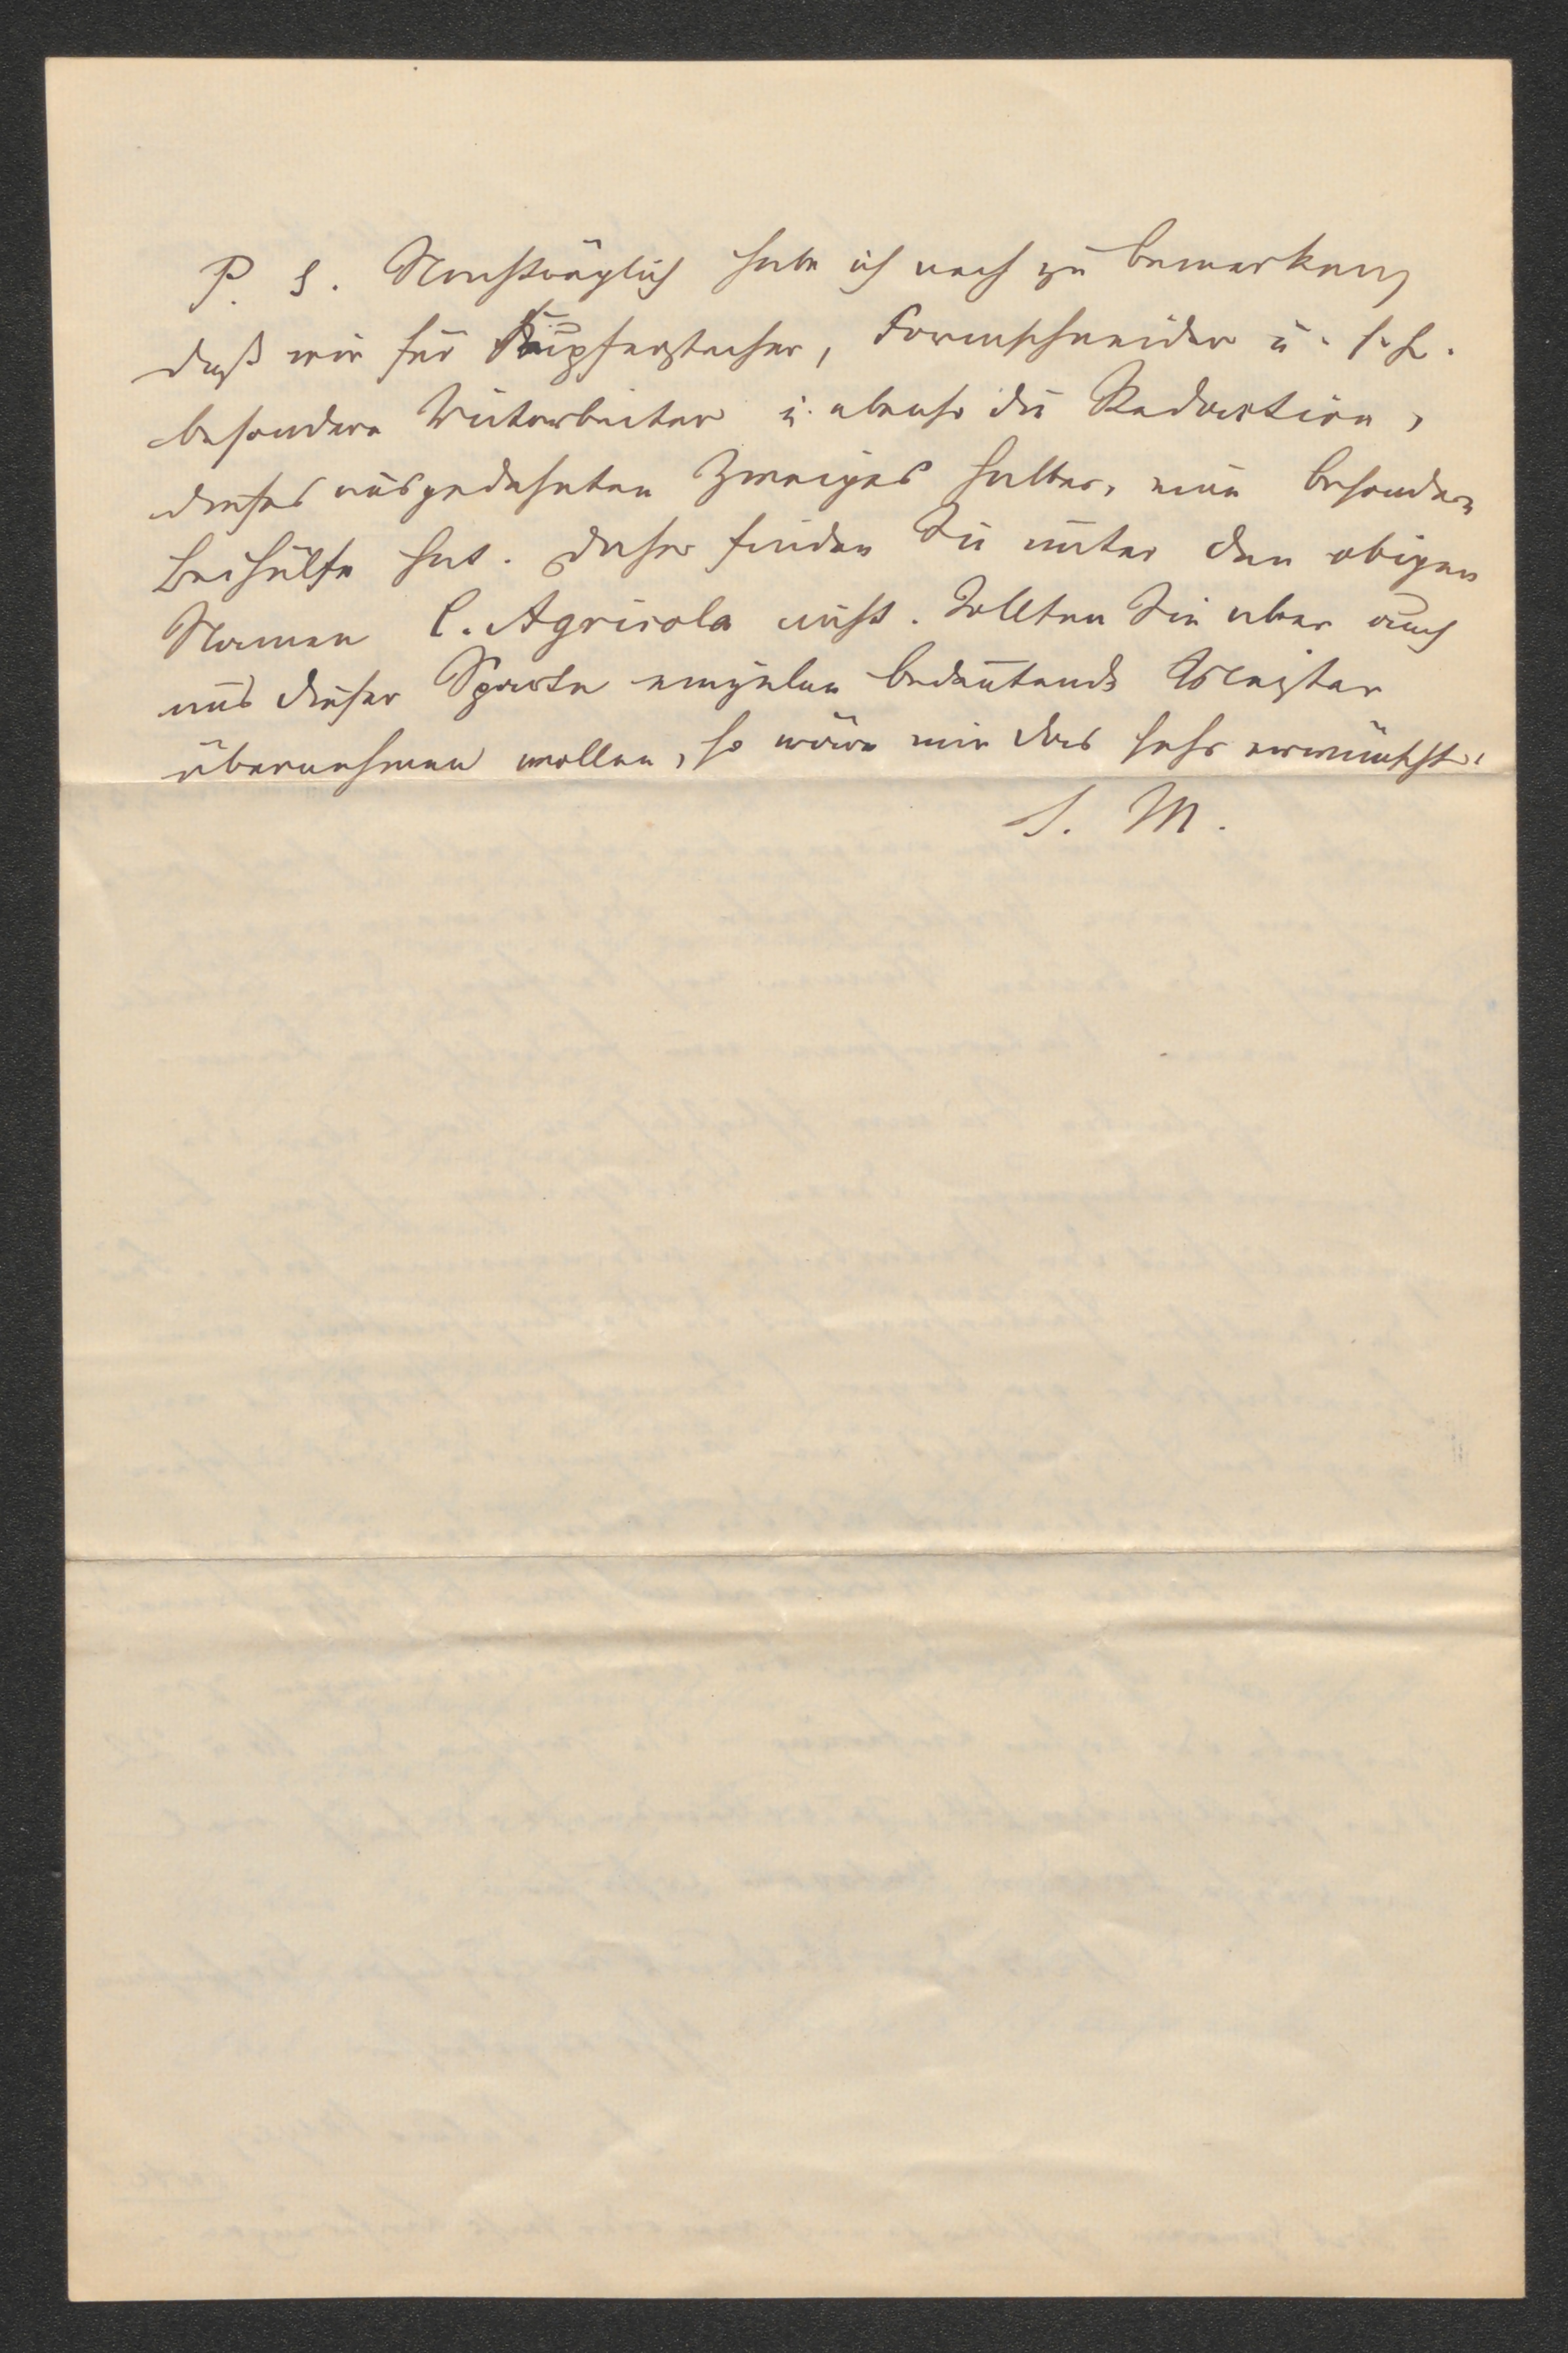 P. S. Nachträglich habe ich noch zu bemerken,
daß wir für Kupferstecher, Formschneider u. s. f.
besondere Mitarbeiter u. ebenso die Redaction,
dieses ausgedehnten Zweiges halber, eine besondere
Beihülfe hat. Daher finden Sie unter den obigen
Namen C. Agricola nicht. Sollten Sie aber auch
aus dieser Sparte einzelne bedeutende Meister
übernehmen wollen, so wäre mir das sehr erwünscht.
J. M.